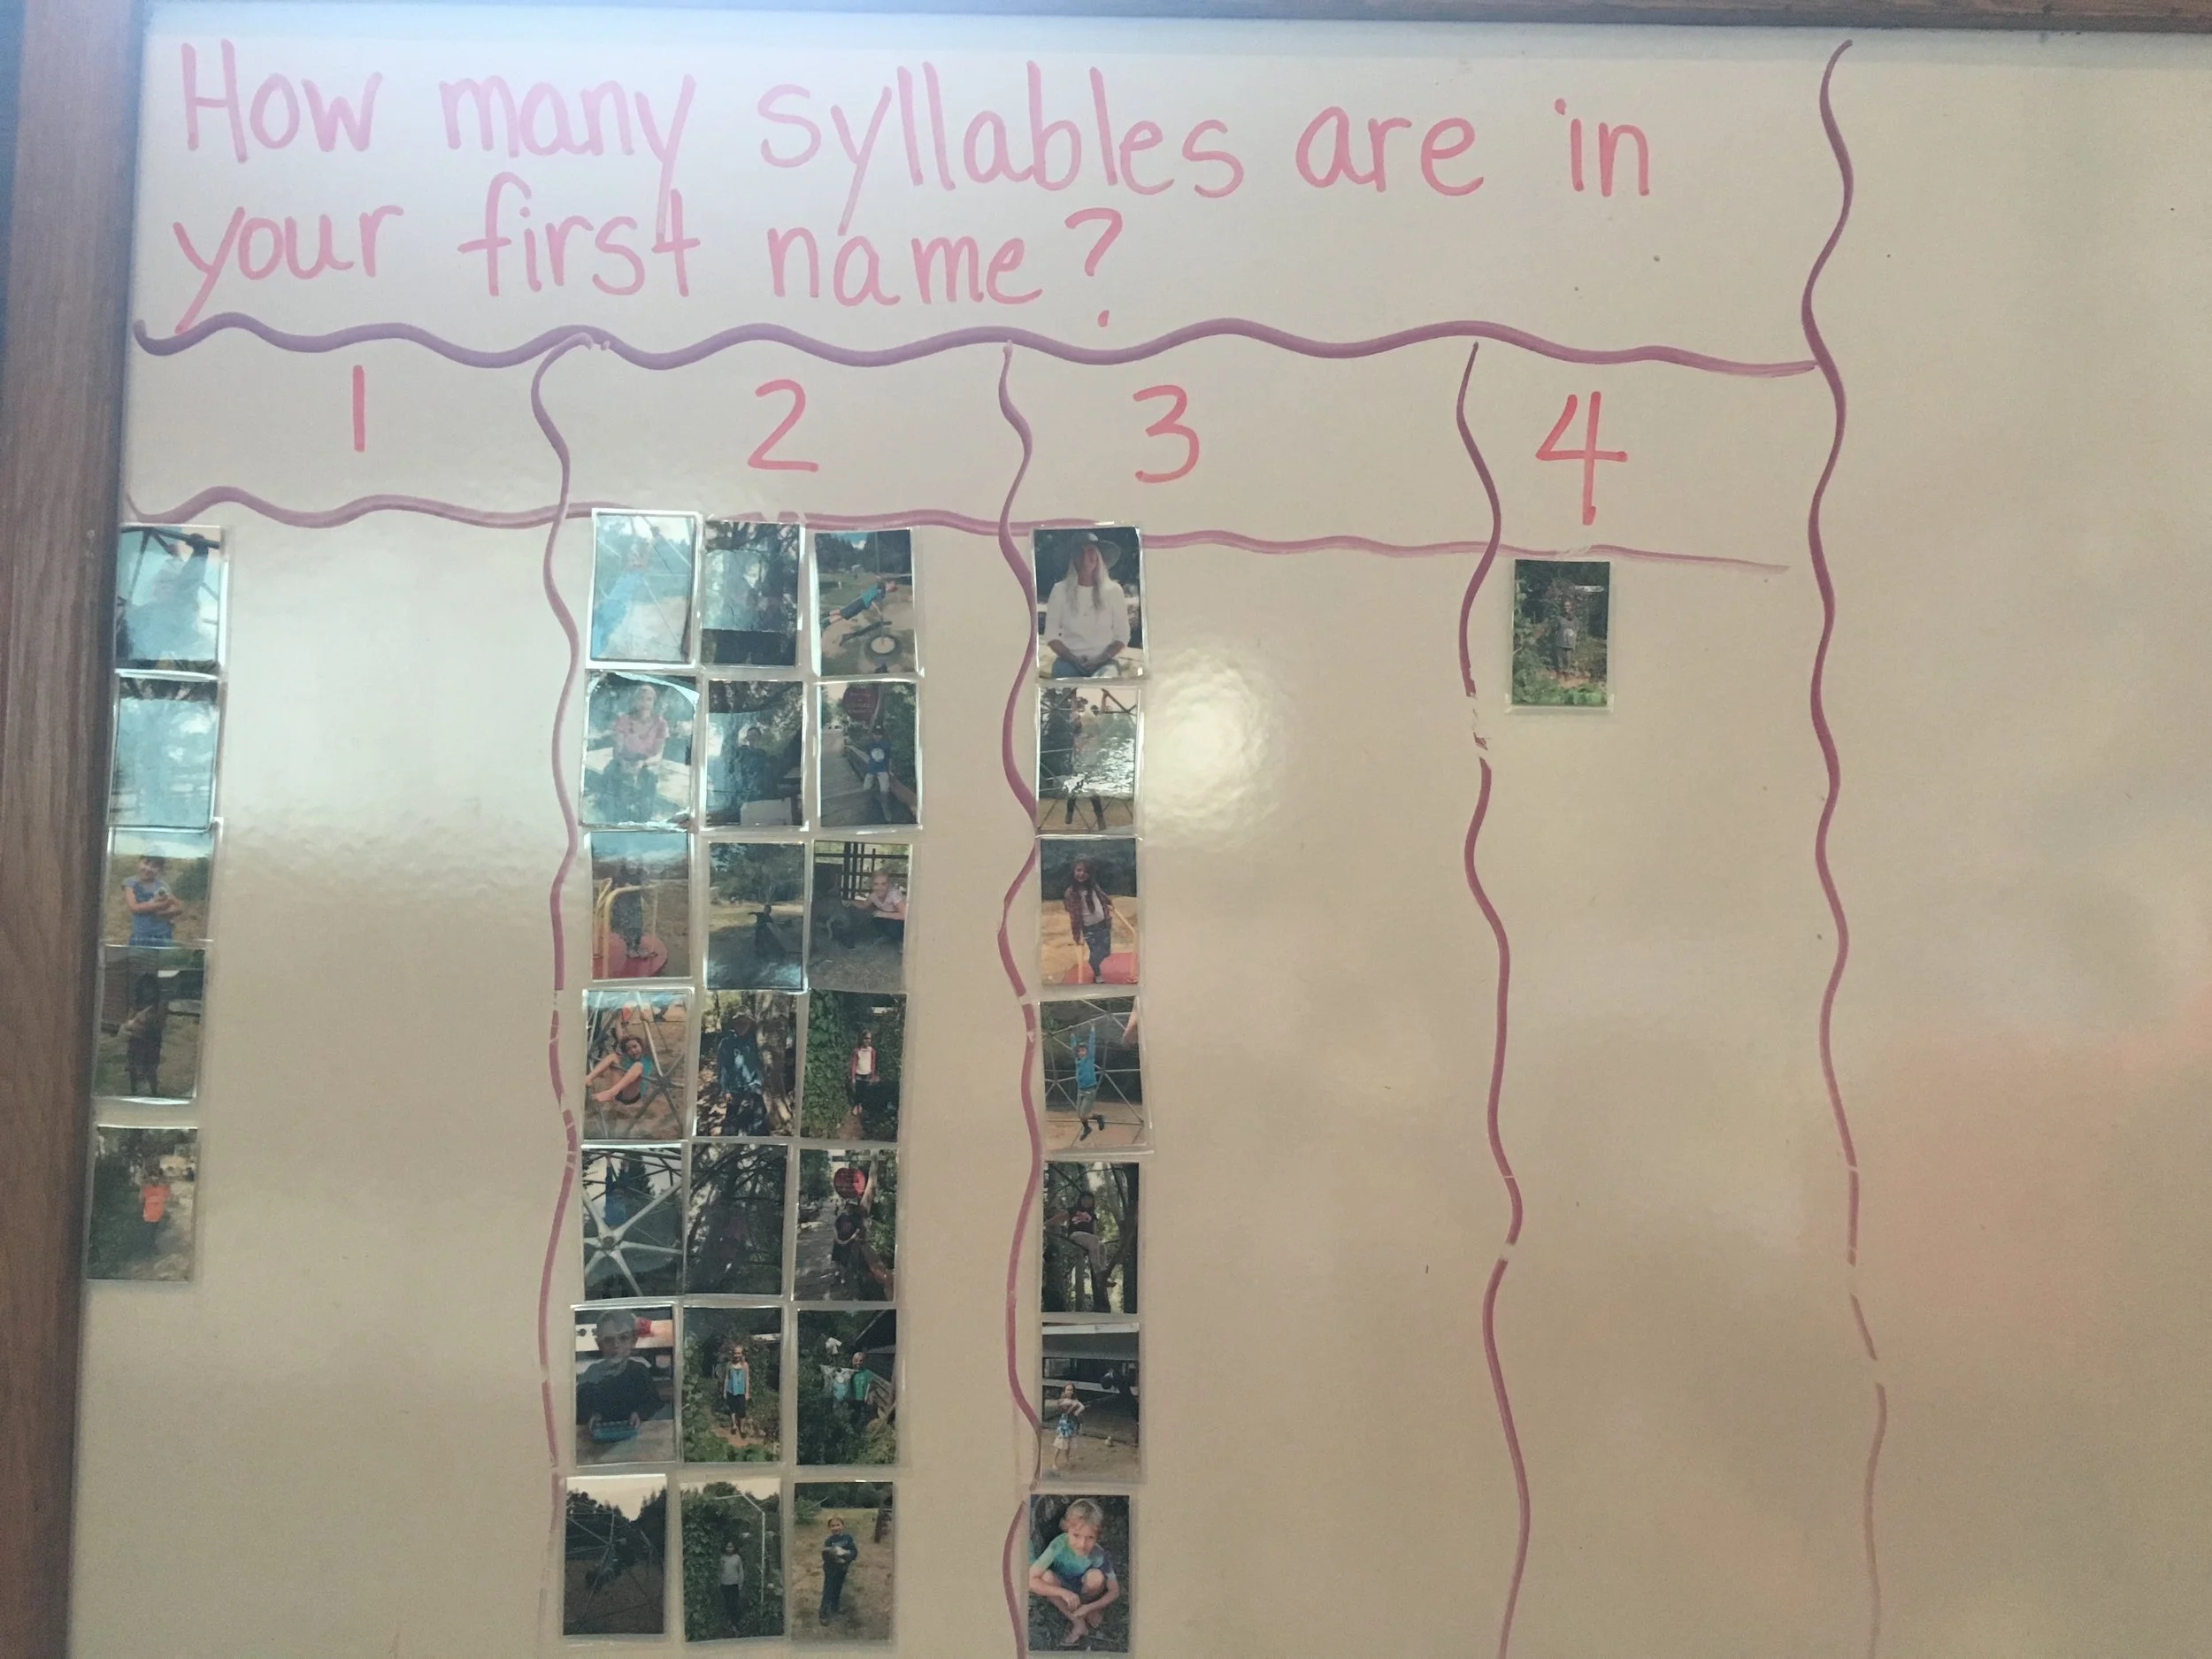 How many syllables are in
your first name?
1 2 3 4